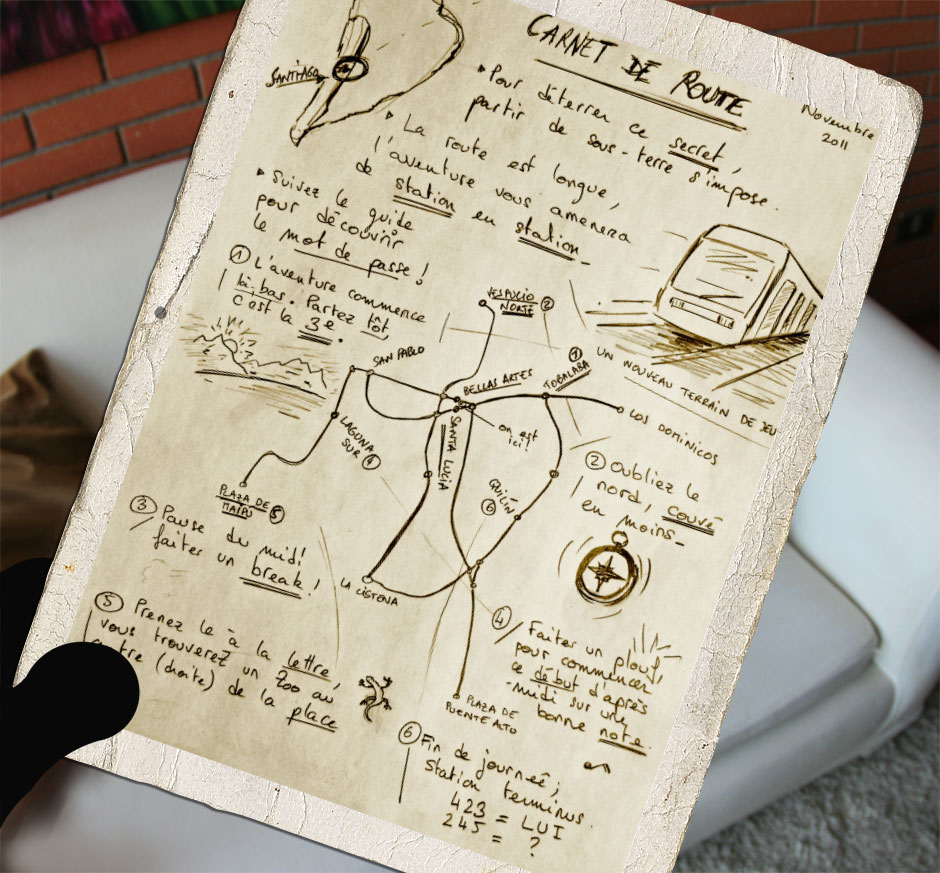 CARNET DE ROUTE
Novembre
2011
SANTIAGO
▸ Pour déterrer ce secret,
partir de sous-terre s'impose.
▸ La route est longue,
l'aventure vous amenera
de station en station_
▸ Suivez le guide
pour découvrir
le mot de passe !
① L'aventure commence
là, bas. Partez tôt
c'est la 3e.
VESPUCIO
NORTE ②
SAN PABLO
BELLAS ARTES
TOBALABA
①
LOS DOMINICOS
UN NOUVEAU TERRAIN DE JEU
SANTA LUCIA
on est
ici!
LAGUNA
SUR ④
PLAZA DE
MAIPU ⑤
QUILÍN
⑥
LA CISTERNA
PLAZA DE
PUENTE ALTO
② Oubliez le
nord, couvé
en moins_
③ Pause du midi
faites un break !
④ Faites un plouf,
pour commencer
ce début d'après
-midi sur une
bonne note.
⑤ Prenez le à la lettre,
vous trouverez un zoo au
centre (droite) de la place
⑥ Fin de journée;
station terminus.
423 = LUI
245 = ?